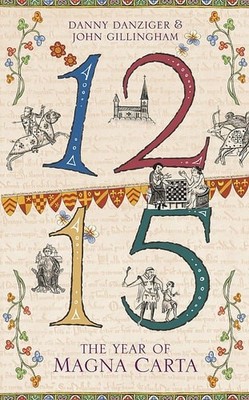 DANNY DANZIGER &
JOHN GILLINGHAM
12
15
THE YEAR OF
MAGNA CARTA